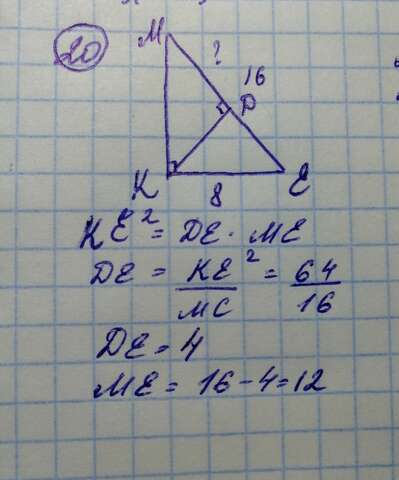 20
M
?
16
D
K
8
E
KE² = DE · ME
DE = KE² / MC = 64 / 16
DE = 4
ME = 16 - 4 = 12